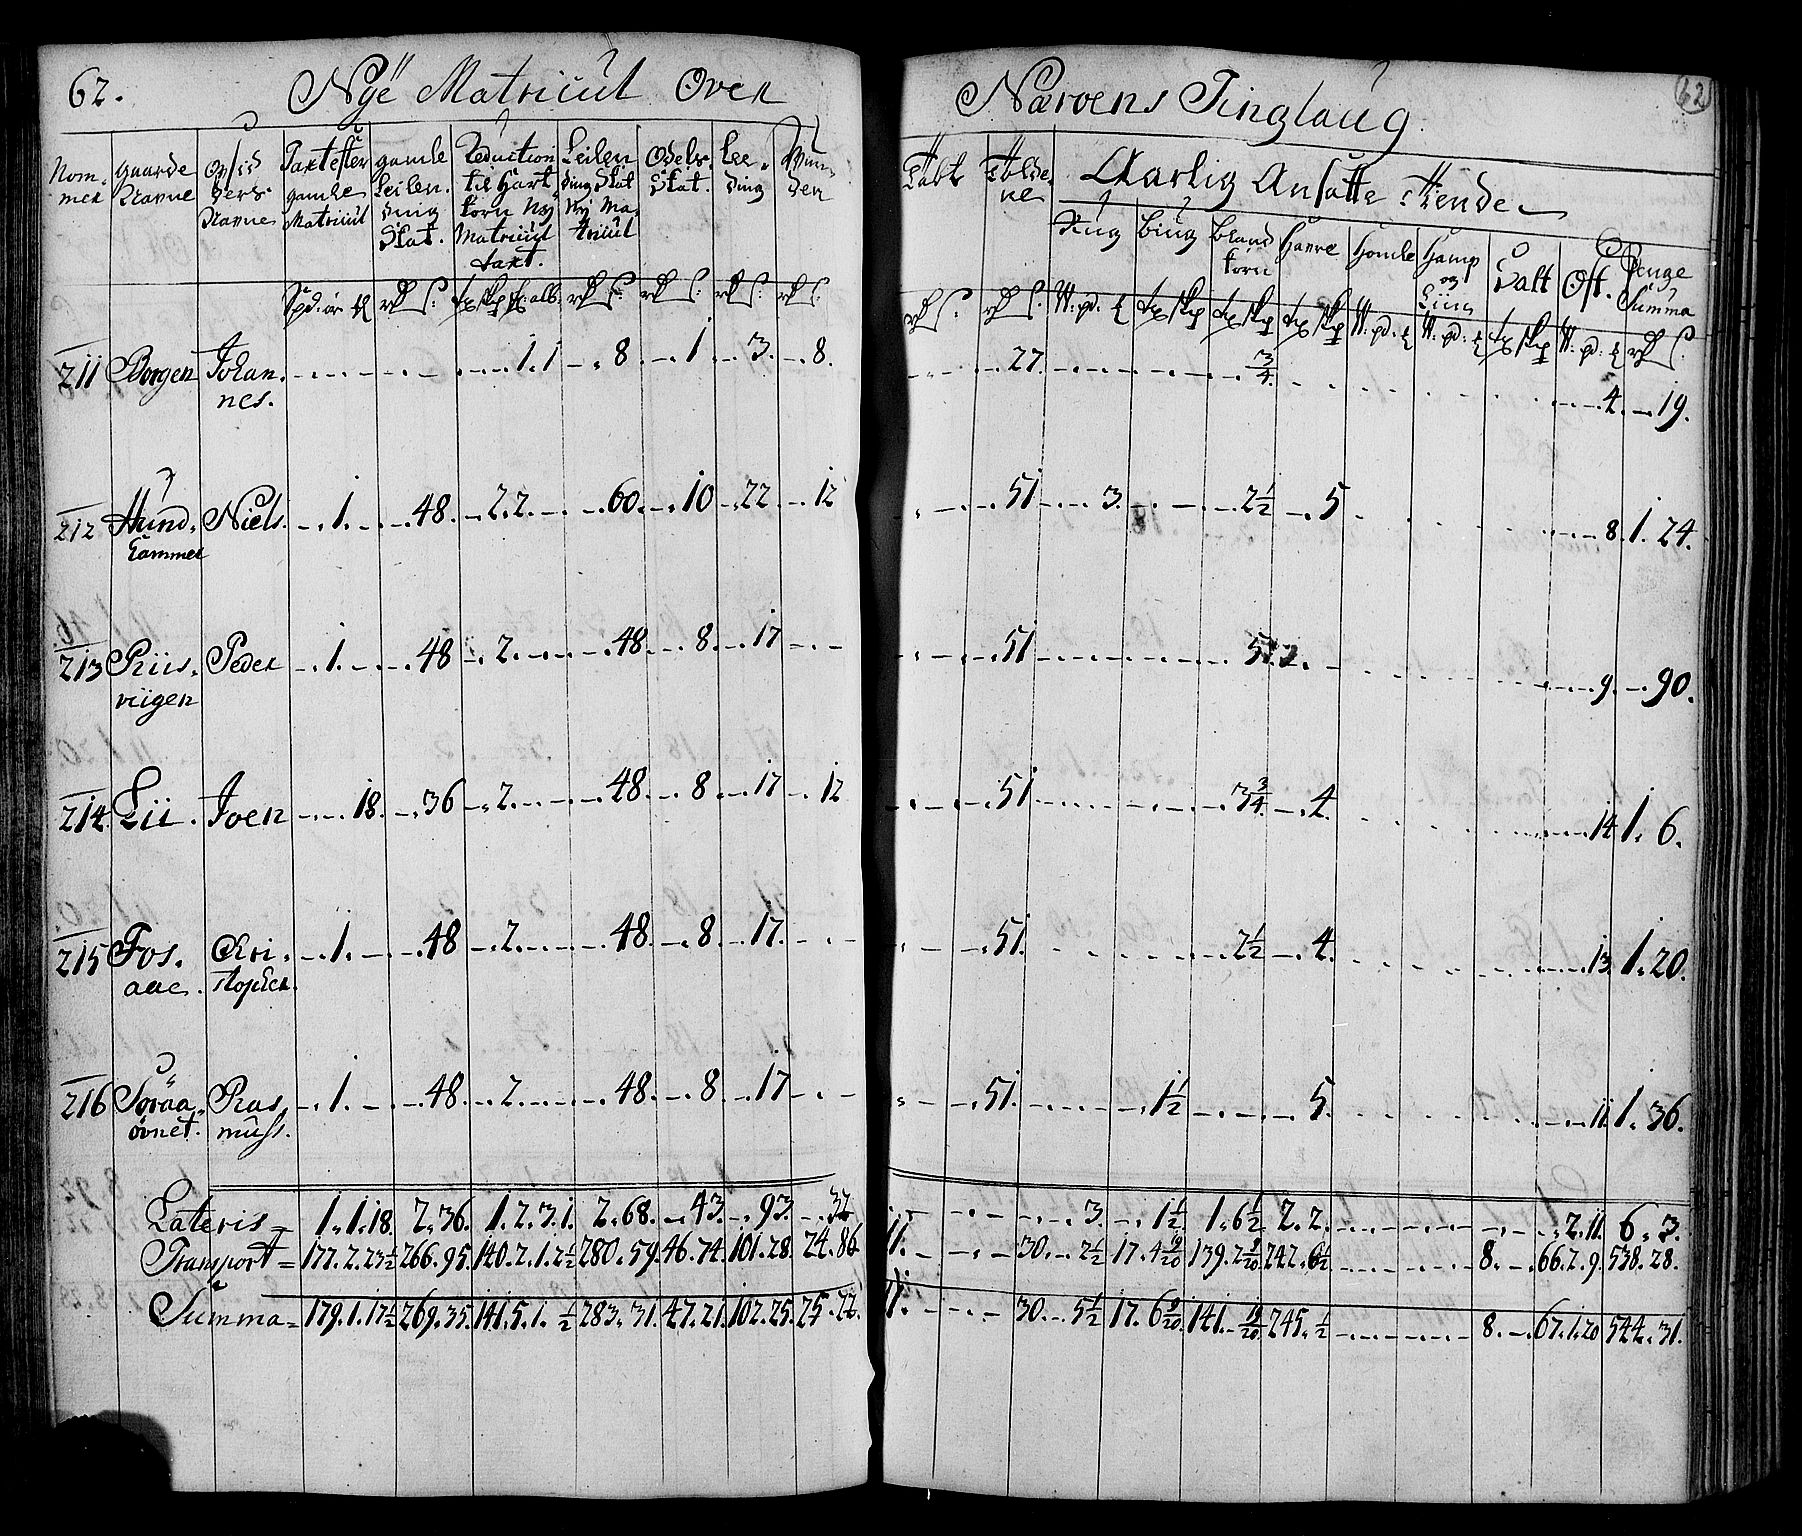 62. Nye Matricul Over Nærvens Tinglaug. 62
Nom-mer | Gaarde Navne | Opsid ders Navne | Taxt efter gamle Matricul | gamle Leilen-ding Skat. | Reduction til Hart korn Ny Matricul taxt. | Leilen ding Skat Ny Ma-tricul | Odels Skat. | Lee-ding | | | | Aarlig Ansatte Tiende
Rug | Biug | Bland korn | Havre | Homle | Hamp og Liin | Salt | Ost. | Penge Summa
211 Borgen Johan-nes. 1.1 8. 1 3. 8. 27. 3/4. 4. 19.
212 Hund-hammer Niels. 1. 48. 2.2. 60. 10 22 12 51 3. 2 1/2 5 8. 1. 24.
213 Riis-viigen Peder 1. 48 2. 48 8. 17 51 9. 90.
214. Lii. Joen 18. 36 2. 48. 8 17 12 51 3 3/4. 4. 14 1. 6.
215 Fos-aae. Chri-stopher. 1. 48 2. 48. 8 17. 51. 2 1/2 4. 13 1. 20.
216 Søraa-øvnet. Ras-muss. 1. 48. 2. 48. 8 17 51. 1 1/2 5. 11 1. 36.
Lateris = 1. 1. 18. 2. 36. 1. 2. 3. 1. 2. 68. 43. 93. 32 3. 1 1/2. 1. 6 1/2 2. 2. 2. 11. 6. 3.
Transport = 177. 2. 23 1/2 266. 95. 140. 2. 1. 2 1/2 280. 59. 46. 74. 101. 28. 24. 86 11. 30. 2 1/2 17. 4 9/20 139. 2 9/20 242. 6 1/2 8. 66. 2. 9. 538. 28.
Summa = 179. 1. 17 1/2 269. 35. 141. 5. 1. 1/2 283. 31. 47. 21. 102. 25. 25. 22. 11. 30. 5 1/2 17. 6 9/20. 141. 19/20 245. 1/2 8. 67. 1. 20 544. 31.